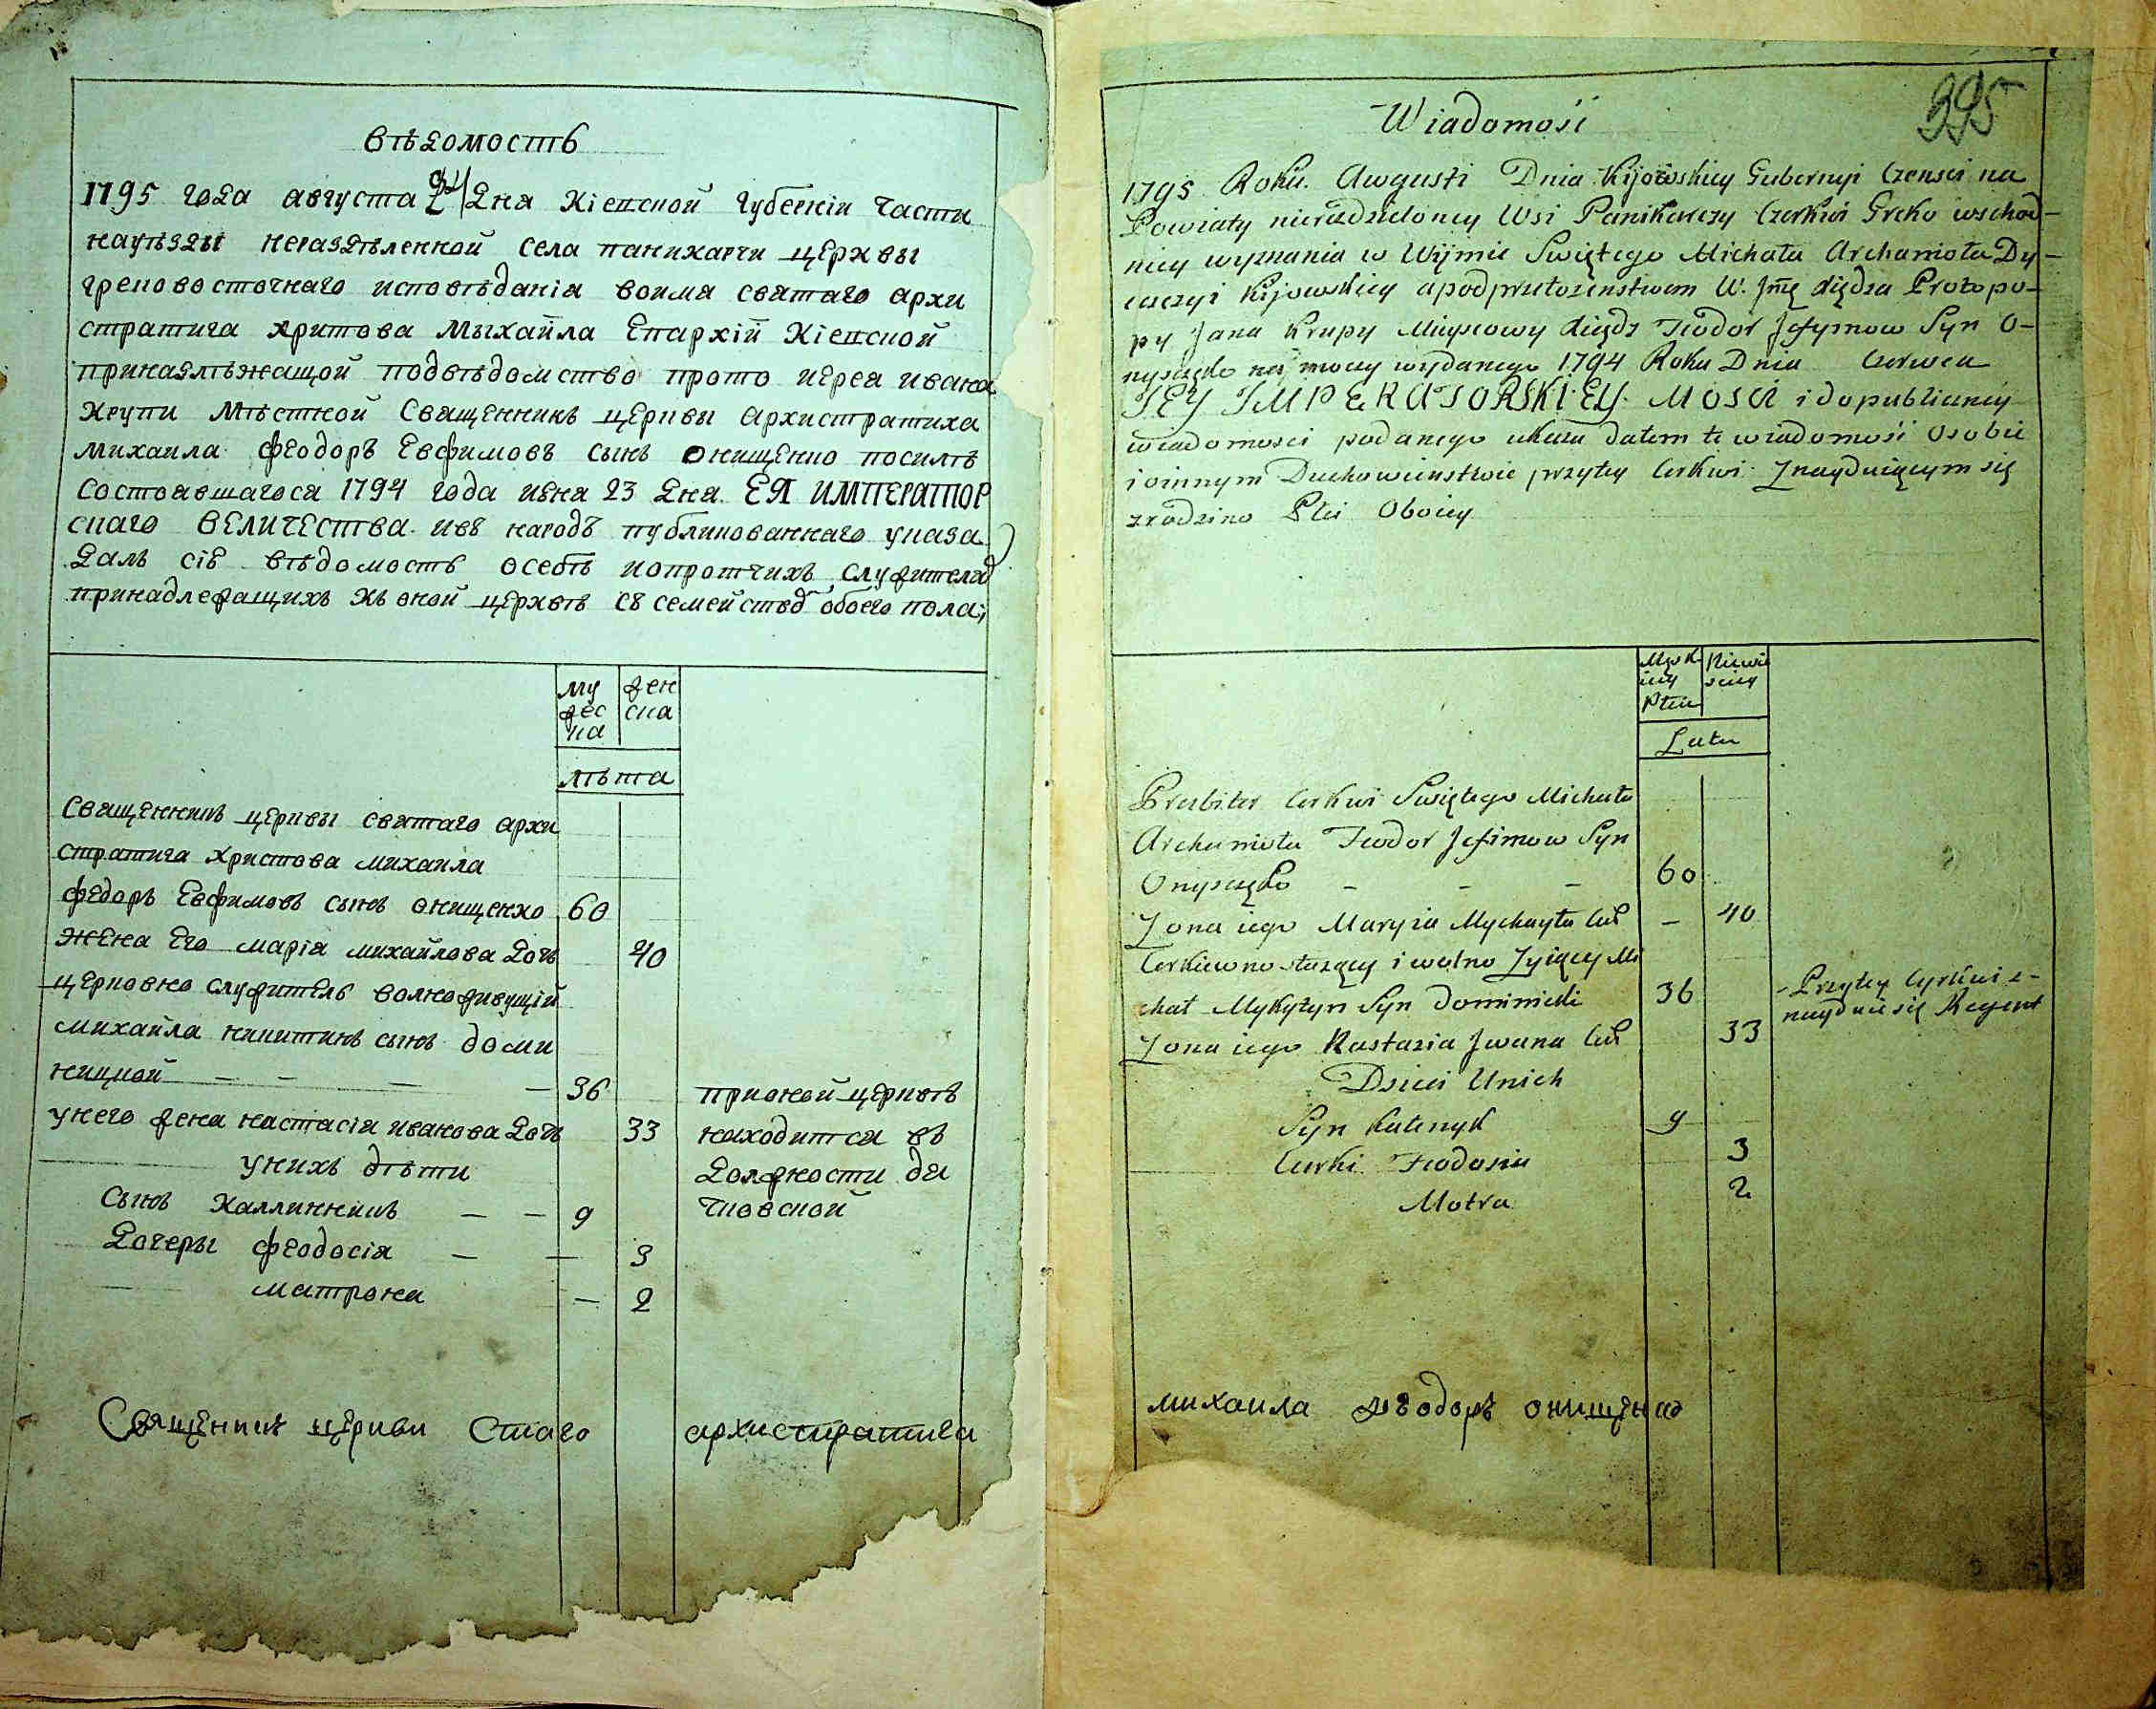 Вѣдомость
1795 года августа Дня Кіевской губерніи части
науѣзды нераздѣленной села паникарчи церквы
грековосточнаго исповѣданія воима святаго архи
стратига хритова Мыхайла Епархій Кіевской
приналѣжащой подвѣдомство прото иерея ивана
Крупи Мѣстной Священникъ церквы архистратиха
михаила феодоръ Евфимовъ сынъ онищенко посилѣ
состоавшагося 1794 года июня 23 дня ЕЯ ИМПЕРАТОР
скаго ВЕЛИЧЕСТВА ивъ народъ публикованнаго указа
далъ сіе вѣдомость особѣ ипротчихъ служителяхъ
принадлежащихъ къ оной церквѣ съ семействѣ обоего пола;
му
жес
ка
жен
ска
лѣта
Священникъ церквы святаго архи
стратига христова михаила
федоръ Евфимовъ сынъ онищенко 60
жена Его марія михайлова дочь 40
церковно служитель волноживущій
михайла никитинъ сынъ доми
ницкой — — — — 36
унего жена настасія иванова дочь 33
унихъ дѣти
сынъ каллинникъ — — 9
дочеры феодосія — — 3
матрона — 2
прионой церквѣ
находится въ
должности дя
чковской
Священикъ церкви Стаго архистратига
395
Wiadomość
1795 Roku Awgusti Dnia Kijowskiey Gubernyi Czensci na
Powiaty nierozdzieloney Wsi Panikarczy Czerkwi Greko wschod-
niey wyznania w Wijmie Swiętego Michała Archanioła Dy-
iecezyi Kijowskiey apodprzełożenstwem W. Jmę xiędza Protopo-
py Jana Krupy Mieyscowy xiądz Teodor Jefymow Syn O-
nyszczko na mocy wydanego 1794 Roku Dnia Czerwca
JEY IMPERATORSKIEY MOSCI i do publiczney
wiadomosci podanego ukazu dałem te wiadomość Osobie
i oinnym Duchowienstwie przytey Cerkwi Znayduiącym się
zrodzino Płci Oboiey
Męsk
iey
Płeci
Niewie
sciey
Lata
Prezbiter Cerkwi Swiętego Michała
Archanioła Teodor Jefimow Syn
Onyszczko – – – 60
Zona iego Maryia Mychayła Cur – 40
Cerkiewno służący i wolno Zyiący Mi
chał Mykytyn Syn Dominicki 36
Zona iego Nastazia Jwana Cur 33
Dzieci Unich
Syn Kalenyk 9
Curki Teodosia 3
Motra 2
- Przytey Cyrkwi z-
nayduie się Regent
михаила феодоръ онищенко